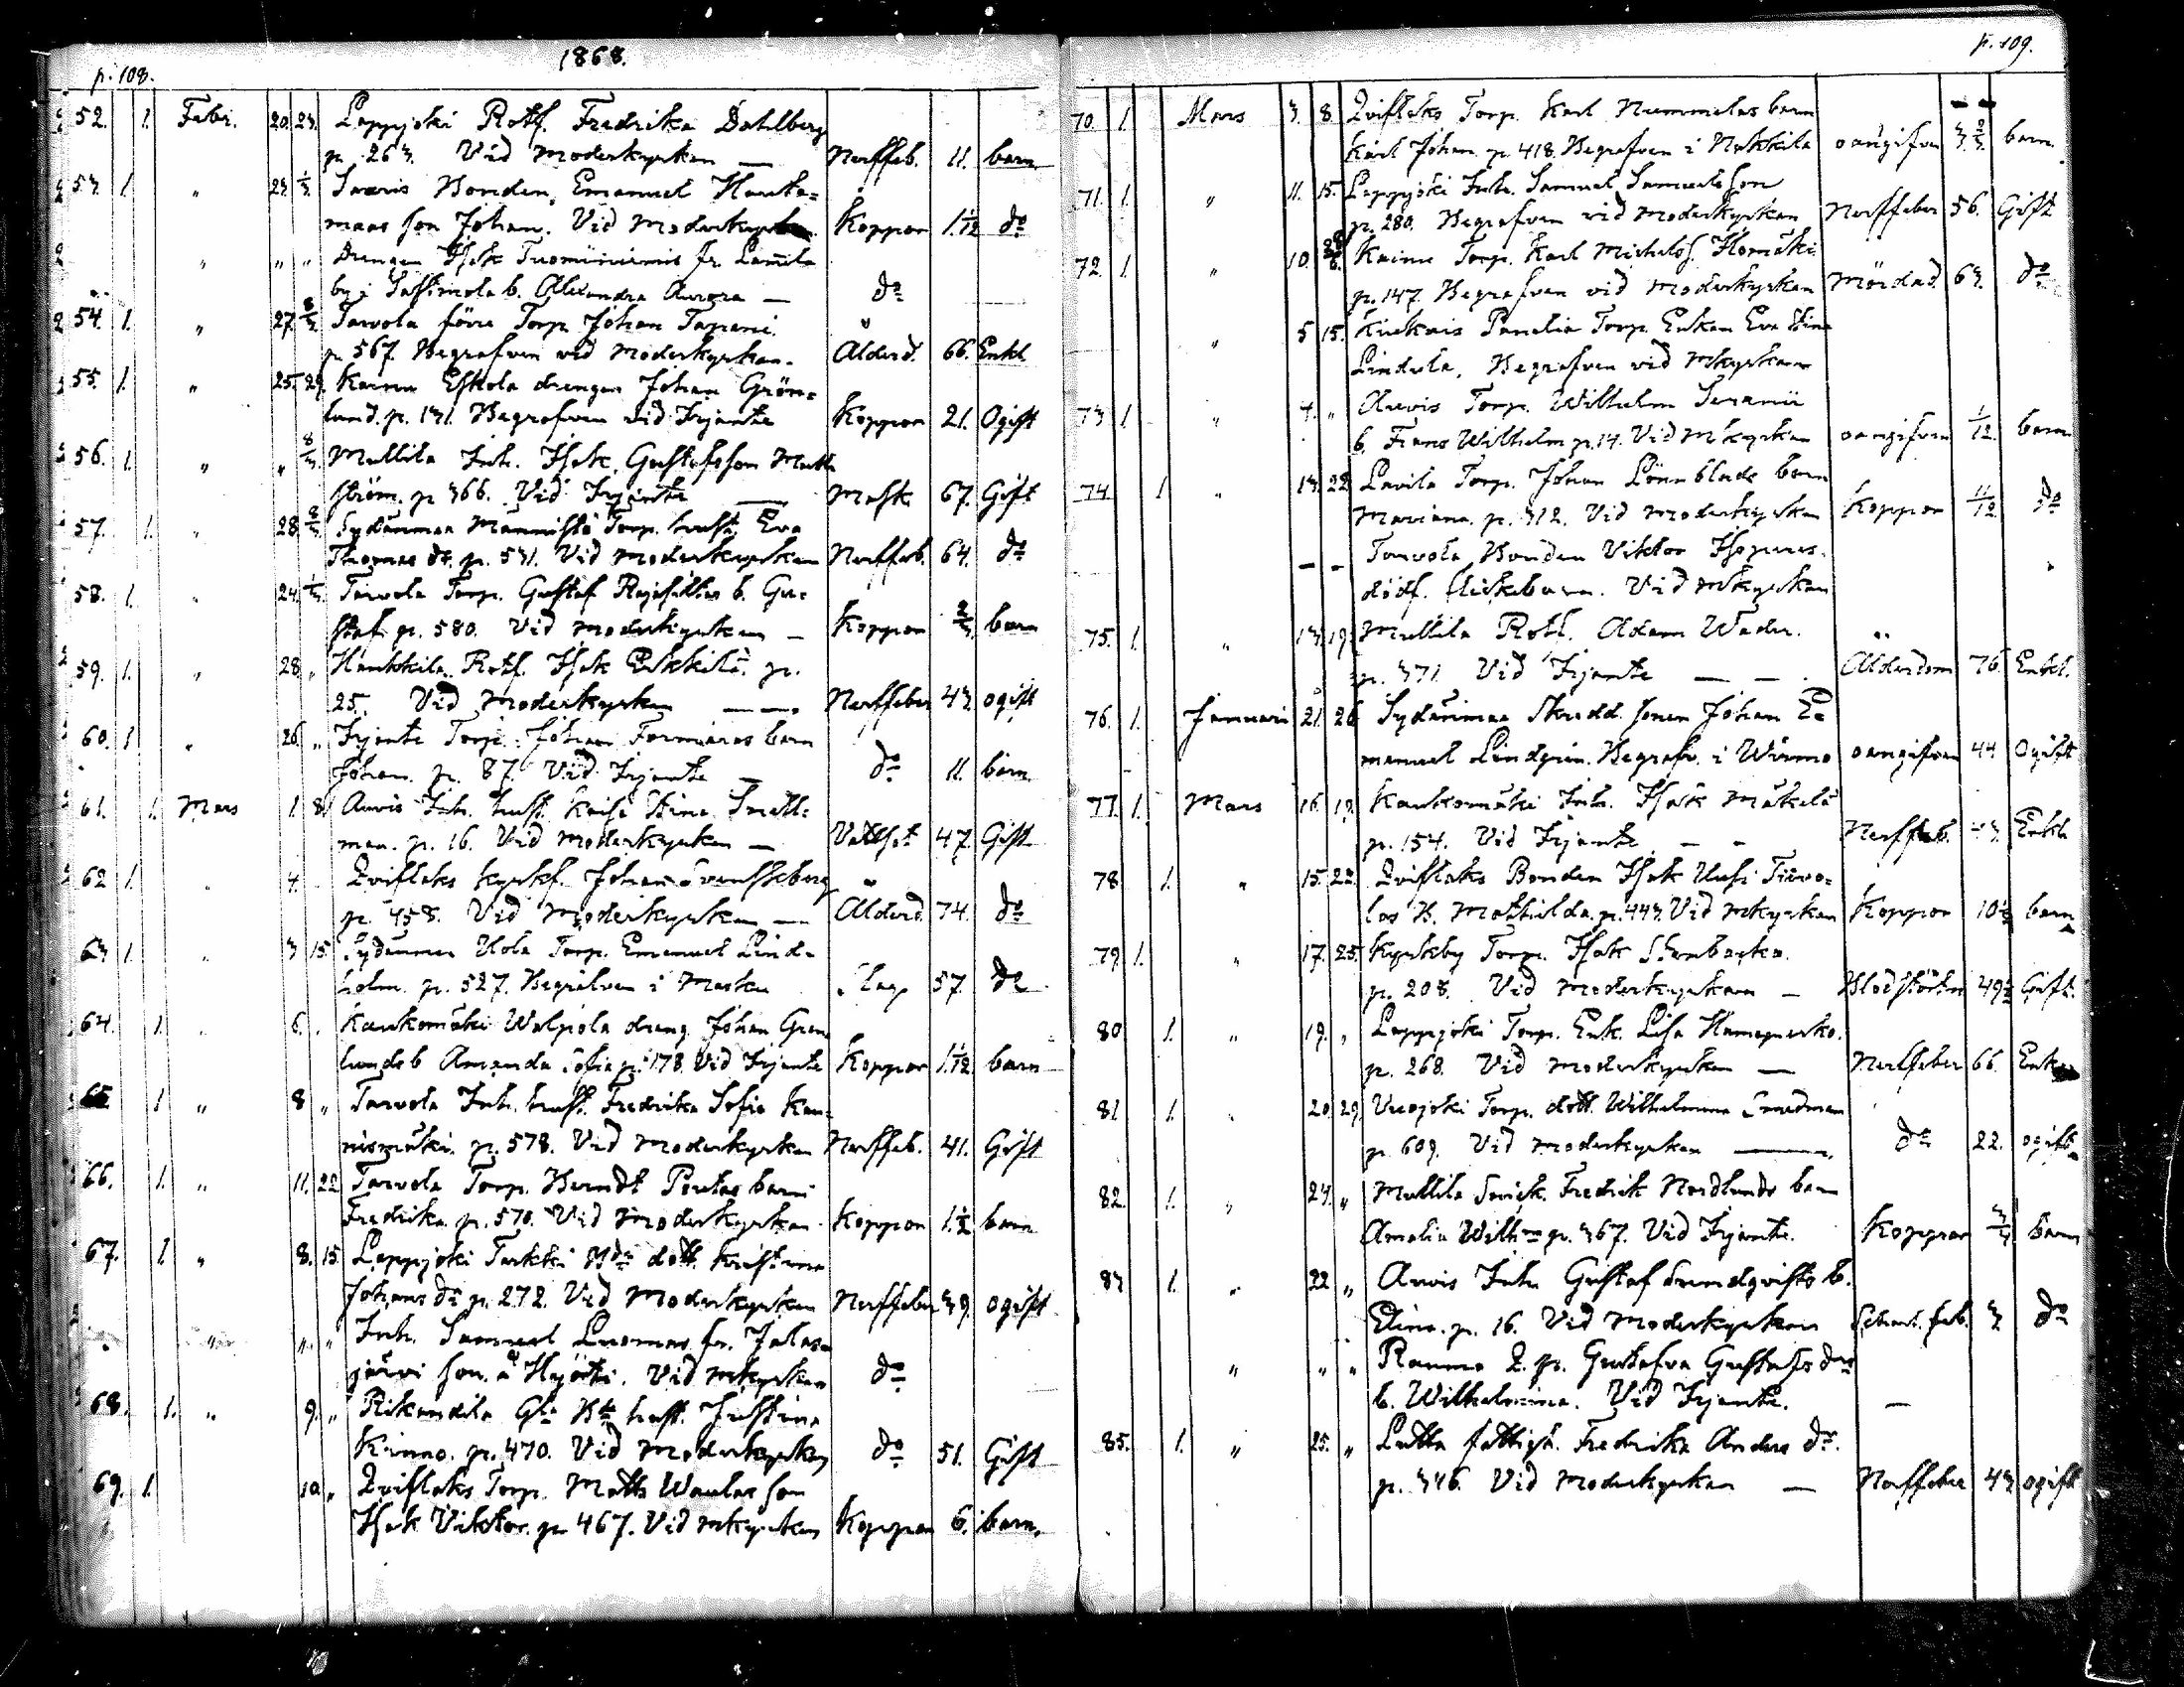 1868.
p. 108.
52. 1. Febr. 20. 23. Leppijoki Rotf. Fredrika Dahlberg
p. 263. Vid Moderkyrkan — Nerffeb. 11. barn
53. 1. " 23. 1/3 Swaris Bonden, Emanuel Hanka-
maas son Johan. Vid Moderkyrkan Koppor 1.1/12 do
" " " Drengen Isak Tuominiemis fr. Lamila
by i Lassimola b. Alexandra Aurora — do
54. 1. " 27. 8/3 Tarvola förre Torp. Johan Tapani
p. 567. Begrafven vid Moderkyrkan. Ålderd. 66. Enkl.
55. 1. " 25. 29. Kainu Eskola drengen Johan Grön-
lund. p. 131. Begrafven vid Irjante Koppor 21. Ogift
56. 1. " " 8/3 Mullila Inh. Isak Gustafsson Matt
ström. p. 366. Vid Irjante — Mask 67. Gift
57. 1. " 28. 8/3 Sydänmaa Mannistö Torp. hust. Eva
Thomas dr. p. 531. Vid Moderkyrkan Nerffeb. 64. do
58. 1. " 24. 1/3 Tarvola Torp. Gustaf Rajasillas b. Gu-
staf p. 580. Vid Moderkyrkan — Koppor 2/3 barn
59. 1. " 28. " Hankkila Rotf. Isak Erkkilä p.
25. Vid Moderkyrkan — Nerffeber 43. ogift
60. 1 " 26. " Irjante Torp. Johan Formares barn
Johan. p. 87. Vid Irjante — do 11. barn
61. 1. Mars 1. 8. Auvis Inh. hust. Kaisa Stina Smått-
man. p. 16. Vid Moderkyrkan — Vattsot 47. Gift
62 1. " 4. Qviflaks kyrkf. Johan Svenskberg
p. 458. Vid Moderkyrkan — Ålderd. 74. do
63 1. " 3 15. Sydänmaa Uola Torp. Emanuel Lind-
holm. p. 527. Begrafven i Masku Slag 57. do
64. 1. " 6. " Kaukomäki Walpola dreng Johan Gran
lunds b Amanda Sofia p. 178. Vid Irjante Koppor 1.1/12. barn
65 1 " 8 " Tarvola Inh. hust. Fredrika Sofia Kau-
nismäki. p. 578. Vid Moderkyrkan Nerffeb. 41. Gift
66. 1. " 11. 22 Tarvola Torp. Berndt Pentas barn
Fredrika p. 570. Vid Moderkyrkan Koppor 1.1/2 barn
67. 1. " 8. 15. Leppijoki Turkki Bds dott. Kristina
Johans dr p. 272. Vid Moderkyrkan Nerffeber 39. ogift
" " " Inh. Samuel Luomas fr. Jalas-
järvi son. a Hajötti. Vid Mkyrkan do
68. 1. " 9. " Rikandila Gla Bds hust. Justina
Kinno. p. 470. Vid Moderkyrkan do 51. Gift
69. 1. 10. " Qviflaks Torp. Matts Waulas son
Isak Viktor. p. 467. Vid Mkyrkan Koppor 6. barn.
p. 109.
70. 1. Mars 3. 8 Qviflaks Torp. Karl Nummelas barn
Karl Johan p. 418. Begrafven i Nakkila oangifven 3.2/3. barn.
71. 1. " 11. 15. Leppijoki Inh. Samuel Samuelsson
p. 280. Begrafven vid Moderkyrkan Nerffeber 56. Gift
72. 1. " 10. 28/6. Kainu Torp. Karl Michelss. Homäki
p. 147. Begrafven vid Moderkyrkan Mördad. 63. do
" 5 15. Kiukais Panelia Torp. Enkan Eva Stina
Lindula, Begrafven vid Mkyrkan
73 1. " 4. " Auvis Torp. Wilhelm Suranii
b. Frans Wilhelm p. 14. Vid Mkyrkan oangifven 1/12. barn
74. 1 " 13. 22. Lavila Torp. Johan Lönnblads barn
Mariana. p. 312. Vid Moderkyrkan Koppor 11/12. do
— — Tarvola Bonden Viktor Isopures.
dödf. flickebarn. Vid Mkyrkan "
75. 1. " 13. 19. Mullila Rotf. Adam Wader.
p. 371. Vid Irjante — — Ålderdom 76. Enkl.
76. 1. Januari 21. 26. Sydänmaa Skredd. sonen Johan E-
manuel Lindgrén. Begrafv. i Wirmo oangifven 44. Ogift
77. 1. Mars 16. 19. Kaukomäki Inh. Isak Mäkelä
p. 154. Vid Irjante — — Nerffeb. 43. Enkl.
78 1. " 15. 22. Qviflaks Bonden Isak Uusi Tarvo-
las B. Mathilda. p. 443. Vid Mkyrkan Koppor 10 1/2 barn
79. 1. " 17. 25. Kyrkby Torp. Isak Stenbacka.
p. 208. Vid Moderkyrkan — Blodstörtn. 49 1/2 Gift.
80 1. " 19. " Leppijoki Torp. Enk. Lisa Hamepesko.
p. 268. Vid Moderkyrkan — Nerffeber 66. Enka
81 1. " 20. 29. Vuojoki Torp. dott. Wilhelmina Smedman
p. 609. Vid Moderkyrkan — do 22. ogift
82. 1. " 24. " Mullila Snick. Fredrik Nordlunds barn
Amalia Wilhna p. 367. Vid Irjante. Koppor 3/4 barn
83 1. " 22 " Auvis Inh Gustaf Sundqvists b.
Elina. p. 16. Vid Moderkyrkan Scharl. feb. 3 do
" " " Raumo L. p. Gustafva Gustafs drs
b. Wilhelmina. Vid Irjante. —
85. 1. " 25. " Lutta fattigh. Fredrika Anders dr.
p. 346. Vid Moderkyrkan — Nerffeber 43 ogift